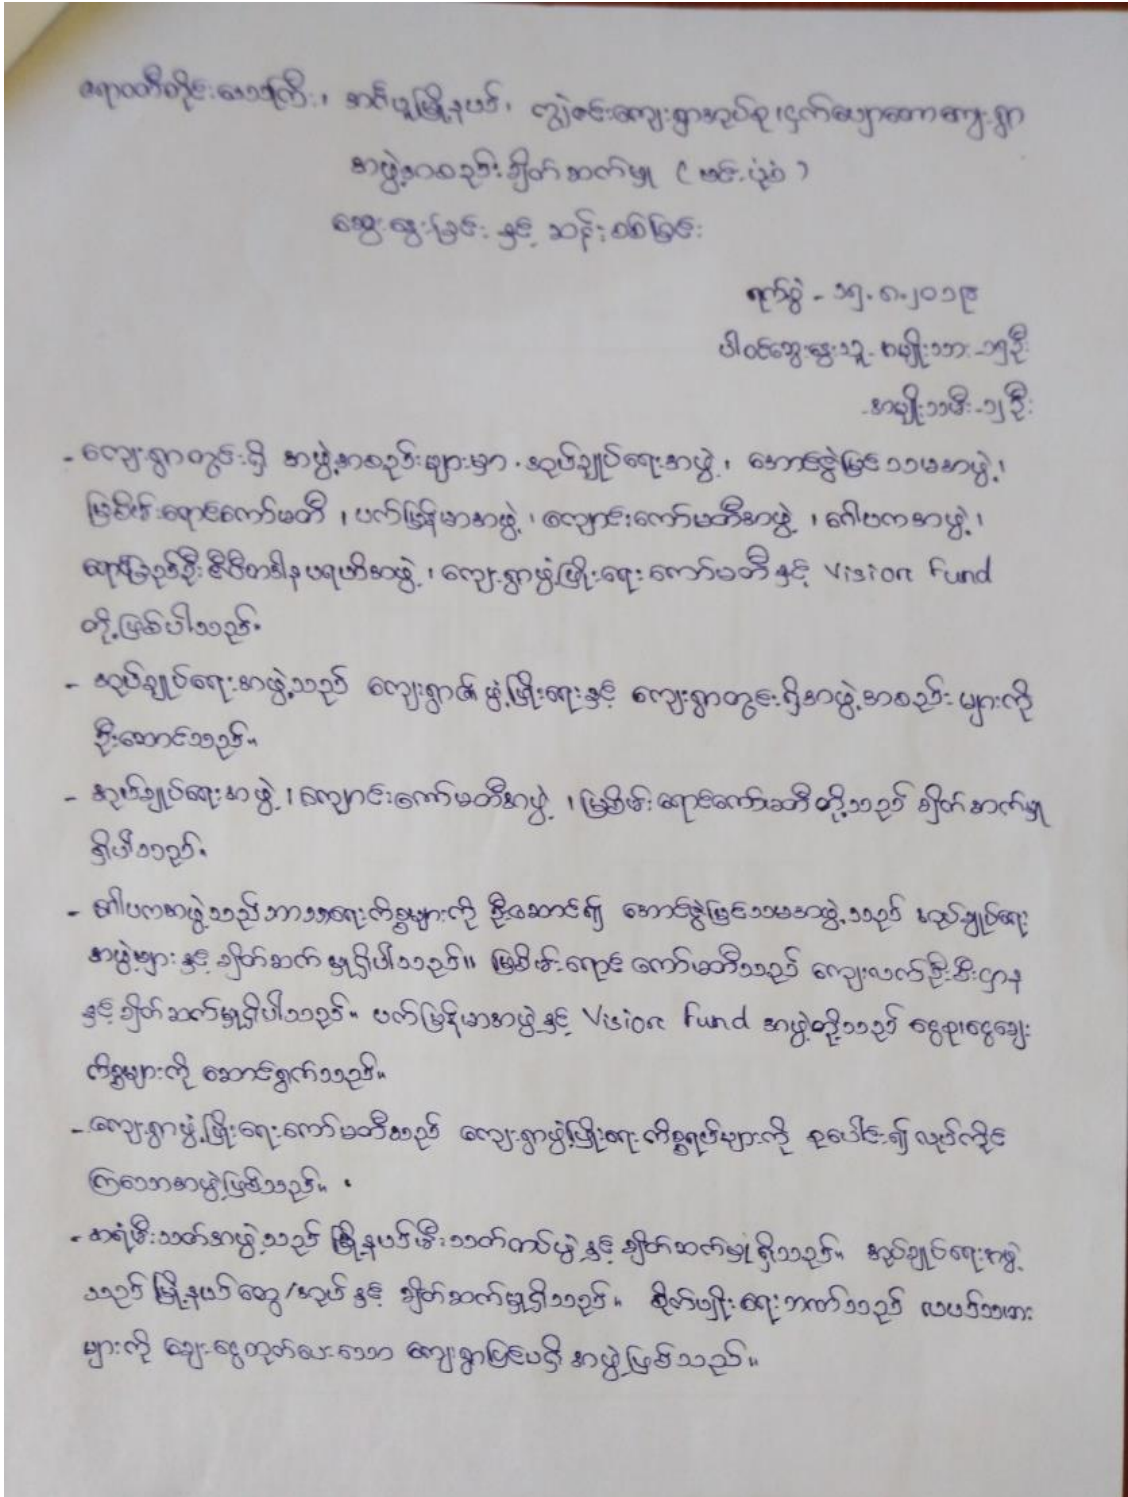 ဧရာဝတီတိုင်းဒေသကြီး၊ အင်္ဂပူမြို့နယ်၊ ကျွဲဇင်းကျေးရွာအုပ်စု၊ ငှက်ပျောတောကျေးရွာ
အဖွဲ့အစည်းချိတ်ဆက်မှု ( ဗင်းပုံစံ )
ဆွေးနွေးခြင်း နှင့် ဆန်းစစ်ခြင်း
ရက်စွဲ - ၁၅.၈.၂၀၁၉
ပါဝင်ဆွေးနွေးသူ - အမျိုးသား - ၁၅ဦး
- အမျိုးသမီး - ၁၂ ဦး
- ကျေးရွာတွင်းရှိ အဖွဲ့အစည်းများမှာ . အုပ်ချုပ်ရေးအဖွဲ့၊ အောင်ပွဲမြင့်သာမအဖွဲ့၊
မြစိမ်းရောင်ကော်မတီ ၊ ပက်မြန်မာအဖွဲ့ ၊ ကျောင်းကော်မတီအဖွဲ့ ၊ ဂေါပကအဖွဲ့၊
ဇီဝိတဒါန ပရဟိတအဖွဲ့ ၊ ကျေးရွာဖွံ့ဖြိုးရေးကော်မတီ နှင့် Vision Fund
တို့ဖြစ်ပါသည်။
- အုပ်ချုပ်ရေးအဖွဲ့သည် ကျေးရွာ၏ ဖွံ့ဖြိုးရေးနှင့် ကျေးရွာတွင်းရှိအဖွဲ့အစည်းများကို
ဦးဆောင်သည်။
- အုပ်ချုပ်ရေးအဖွဲ့ ၊ ကျောင်းကော်မတီအဖွဲ့ ၊ မြစိမ်းရောင်ကော်မတီတို့သည် ချိတ်ဆက်မှု
ရှိပါသည်။
- ဂေါပကအဖွဲ့သည် ဘာသာရေးကိစ္စများကို ဦးဆောင်၍ အောင်ပွဲမြင့်သာမအဖွဲ့သည် အုပ်ချုပ်ရေး
အဖွဲ့များ နှင့် ချိတ်ဆက်မှုရှိပါသည်။ မြစိမ်းရောင်ကော်မတီသည် ကျေးလက်ဦးစီးဌာန
နှင့် ချိတ်ဆက်မှုရှိပါသည်။ ပက်မြန်မာအဖွဲ့နှင့် Vision Fund အဖွဲ့တို့သည် ငွေစုငွေချေး
ကိစ္စများကို ဆောင်ရွက်သည်။
- ကျေးရွာဖွံ့ဖြိုးရေးကော်မတီသည် ကျေးရွာဖွံ့ဖြိုးရေးကိစ္စရပ်များကို စုပေါင်း၍ လုပ်ကိုင်
ကြသောအဖွဲ့ဖြစ်သည်။
- အရံမီးသတ်အဖွဲ့သည် မြို့နယ်မီးသတ်တပ်ဖွဲ့နှင့် ချိတ်ဆက်မှုရှိသည်။ အုပ်ချုပ်ရေးအဖွဲ့
သည် မြို့နယ်ထွေ/အုပ် နှင့် ချိတ်ဆက်မှုရှိသည်။ စိုက်ပျိုးရေးဘဏ်သည် လယ်သမား
များကို ချေးငွေထုတ်ပေးသော ကျေးရွာပြင်ပရှိ အဖွဲ့ဖြစ်သည်။